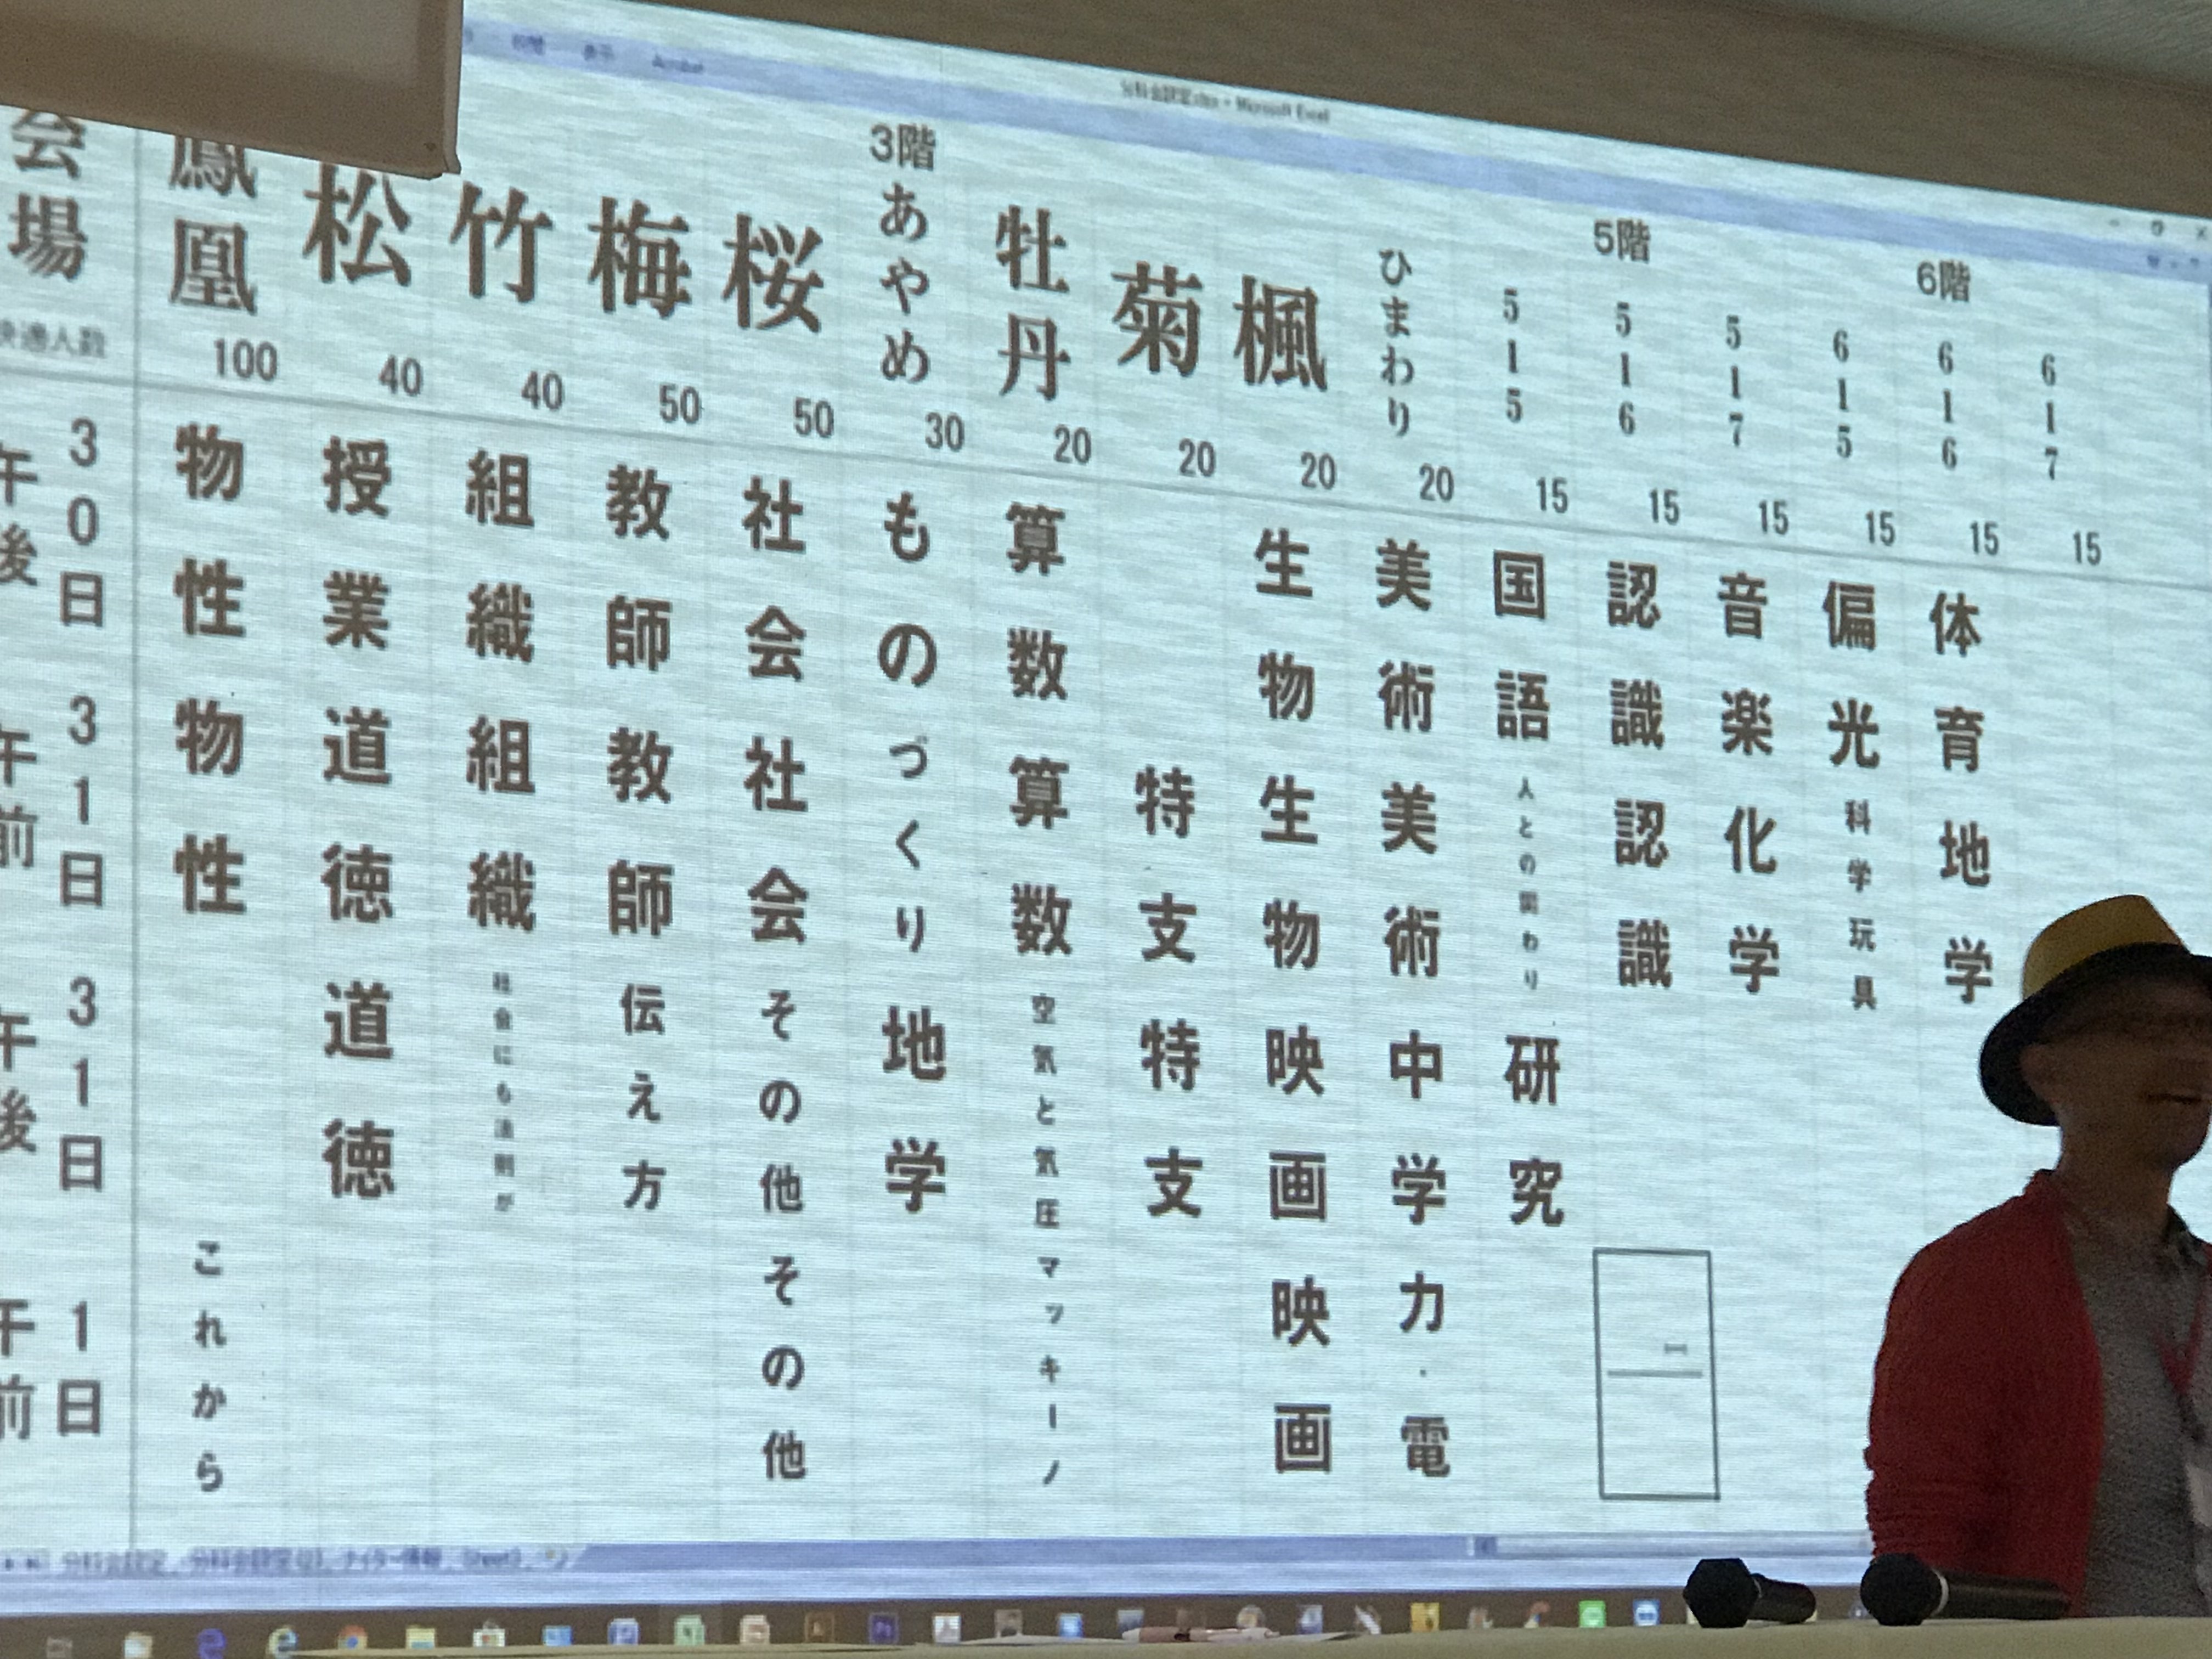 分科会設定.xlsx - Microsoft Excel
校閲 表示 Acrobat
3階
5階
6階
会場
鳳凰
松
竹
梅
桜
あやめ
牡丹
菊
楓
ひまわり
515
516
517
615
616
617
快適人数
100
40
40
50
50
30
20
20
20
20
15
15
15
15
15
15
30日
午後
物性
授業
組織
教師
社会
もの
算数
生物
美術
国語
認識
音楽
偏光
体育
31日
午前
物性
道徳
組織
教師
社会
づくり
算数
特支
生物
美術
人との関わり
認識
化学
科学玩具
地学
31日
午後
道徳
社会にも法則が
伝え方
その他
地学
空気と気圧
特支
映画
中学
研究
1日
午前
これから
その他
マッキーノ
映画
力・電
分科会設定
分科会設定(2)
Sheet3